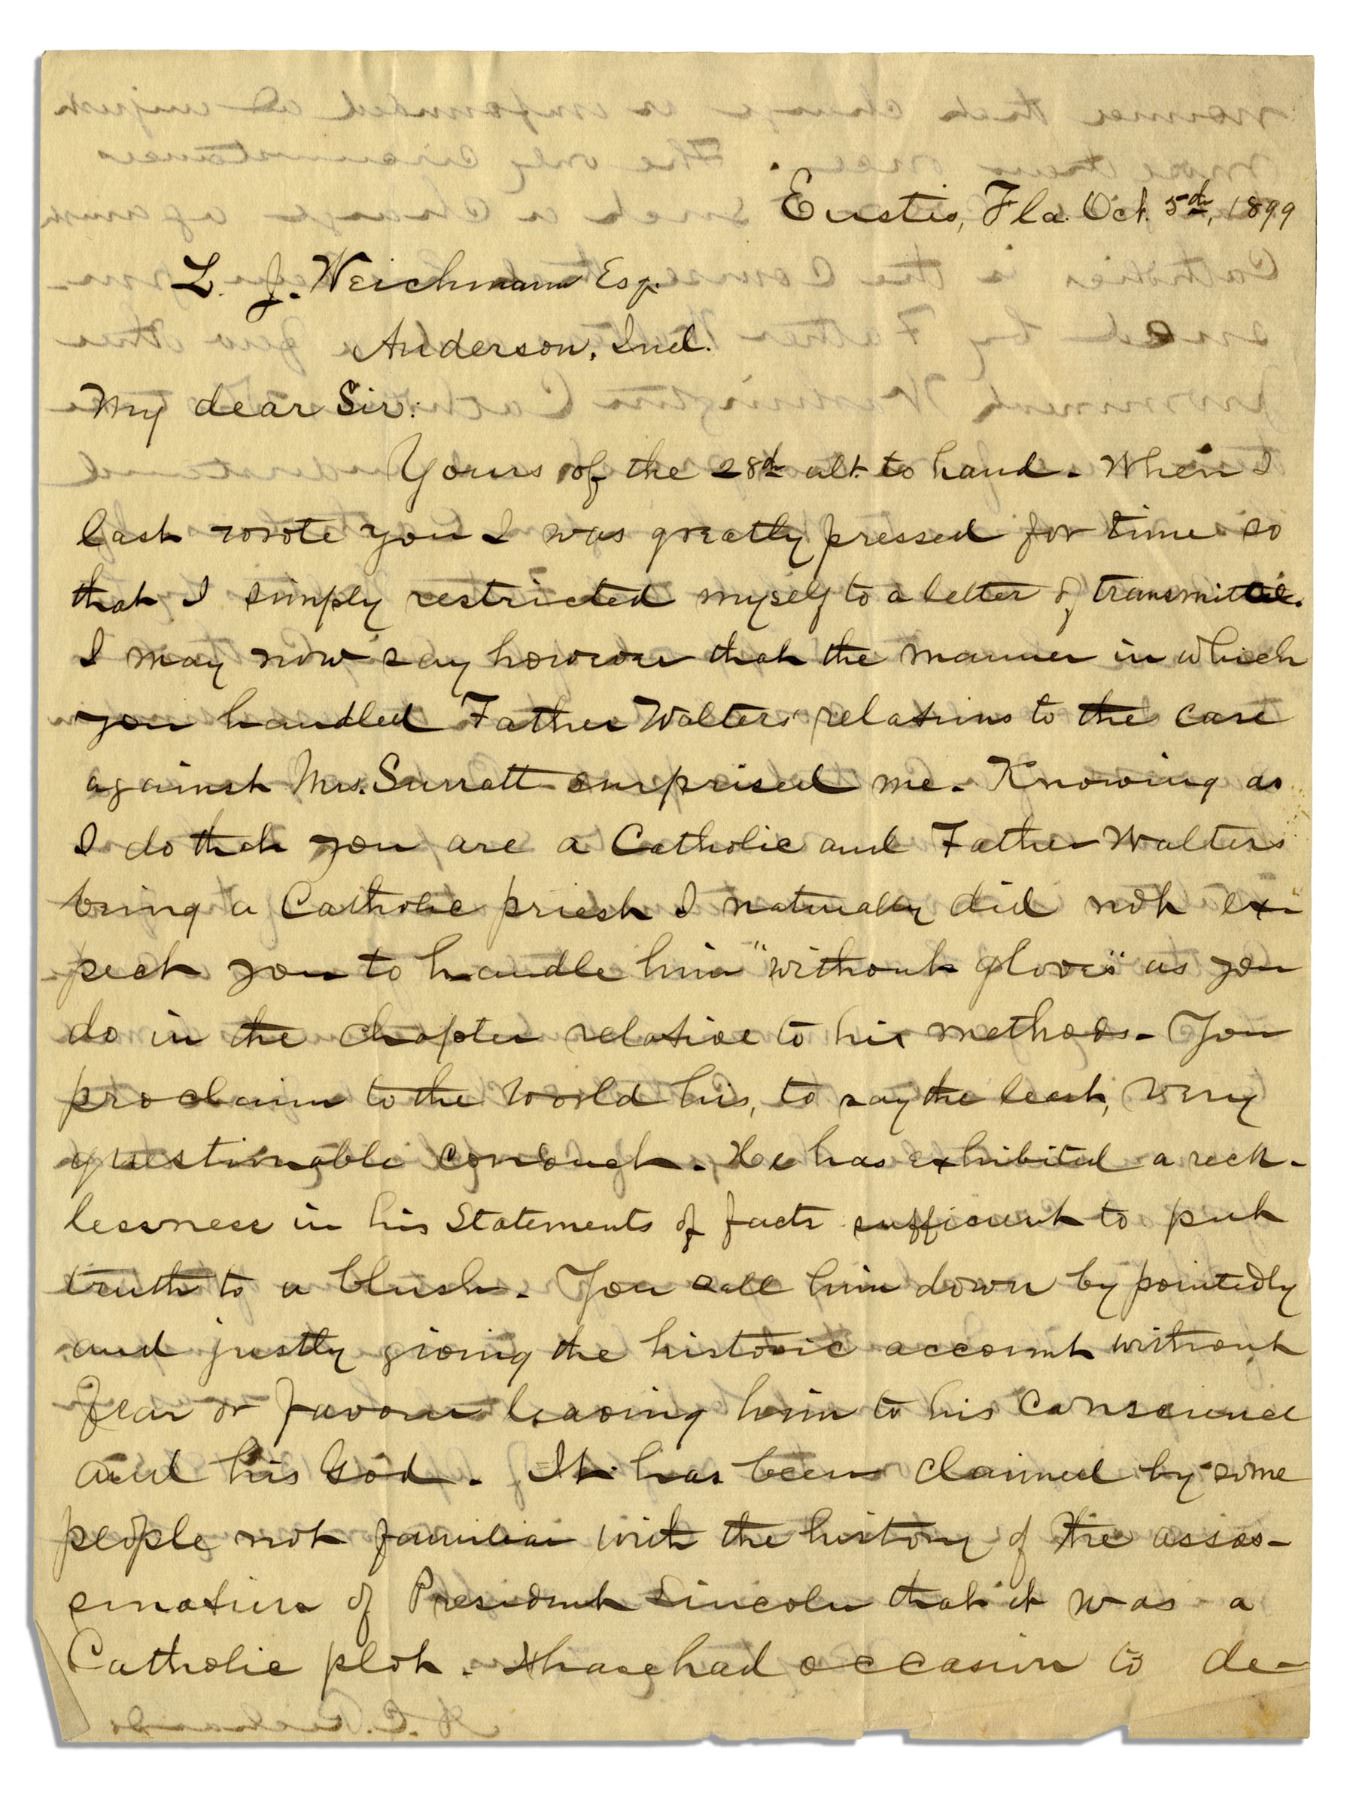 Eustis, Fla. Oct. 5d, 1899
L. J. Weichmann Esq.
Anderson, Ind.
My dear Sir:
Yours of the 28d ult. to hand. When I
last wrote you I was greatly pressed for time so
that I simply restricted myself to a letter of transmittal.
I may now say however that the manner in which
you handled Father Walters relations to the case
against Mrs. Surratt surprised me. Knowing as
I do that you are a Catholic and Father Walters
being a Catholic priest I naturally did not ex-
pect you to handle him "without gloves" as you
do in the chapter relative to his methods. You
proclaim to the world his, to say the least, very
questionable conduct. He has exhibited a reck-
lessness in his statements of facts sufficient to put
truth to a blush. You call him down by pointedly
and justly giving the historic account without
fear or favour leaving him to his conscience
and his God. It has been claimed by some
people not familiar with the history of the assas-
sination of President Lincoln that it was a
Catholic plot. I have had occasion to de-